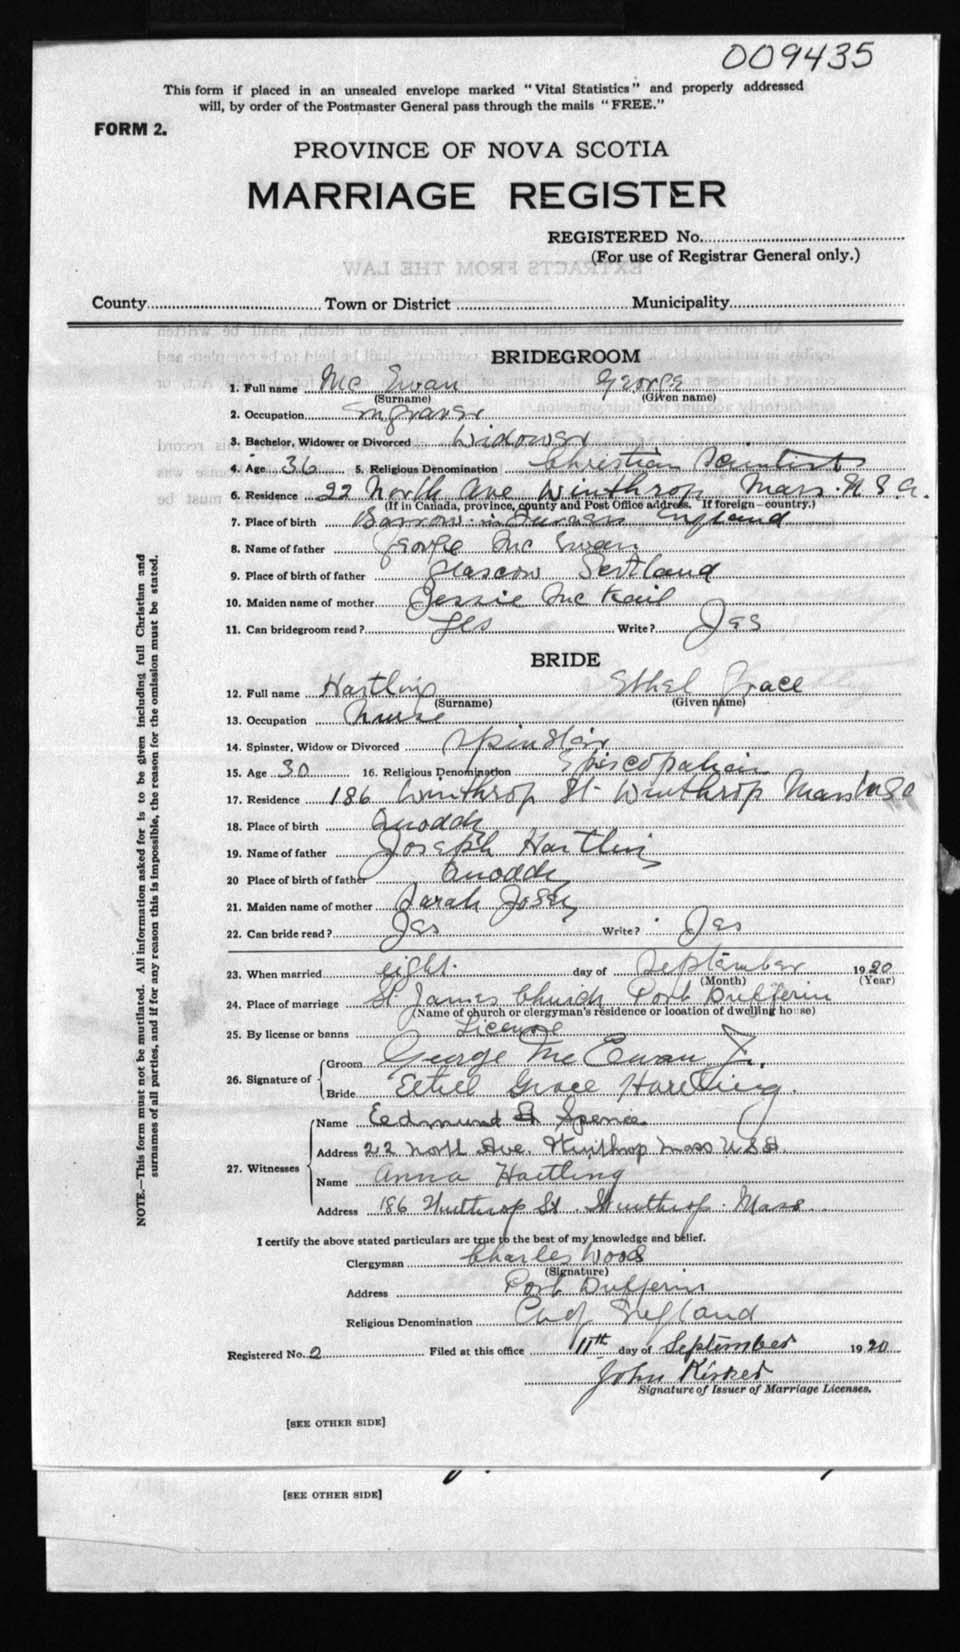 009435
This form if placed in an unsealed envelope marked "Vital Statistics" and properly addressed
will, by order of the Postmaster General pass through the mails "FREE."
FORM 2.
PROVINCE OF NOVA SCOTIA
MARRIAGE REGISTER
REGISTERED No.
(For use of Registrar General only.)
EXTRACTS FROM THE LAW
County Town or District Municipality
BRIDEGROOM
1. Full name Mc Ewan George
(Surname) (Given name)
2. Occupation Engraver
3. Bachelor, Widower or Divorced Widower
4. Age 36 5. Religious Denomination Christian Scientist
6. Residence 22 North Ave Winthrop Mass. U S A.
(If in Canada, province, county and Post Office address. If foreign country.)
7. Place of birth Barrow in Furness England
8. Name of father George Mc Ewan
9. Place of birth of father Glascow Scotland
10. Maiden name of mother Jessie Mc Kail
11. Can bridegroom read? Yes Write? Yes
BRIDE
12. Full name Hartling Ethel Grace
(Surname) (Given name)
13. Occupation Nurse
14. Spinster, Widow or Divorced Spinster
15. Age 30 16. Religious Denomination Episcopalian
17. Residence 186 Winthrop St. Winthrop Mass U S A
18. Place of birth
19. Name of father Joseph Hartling
20 Place of birth of father
21. Maiden name of mother Sarah
22. Can bride read? Yes Write? Yes
23. When married eight day of September 1920
(Month) (Year)
24. Place of marriage St. James Church Port Dufferin
(Name of church or clergyman's residence or location of dwelling house)
25. By license or banns License
26. Signature of Groom George Mc Ewan Jr.
Bride Ethel Grace Hartling.
27. Witnesses Name Edmund St Spence
Address 22 North Ave. Winthrop Mass U S A.
Name Anna Hartling
Address 186 Winthrop St. Winthrop. Mass
I certify the above stated particulars are true to the best of my knowledge and belief.
Clergyman Charles Wood
(Signature)
Address Port Dufferin
Religious Denomination Ch of England
Registered No. 2 Filed at this office 11th day of September 1920
John
Signature of Issuer of Marriage Licenses.
[SEE OTHER SIDE]
[SEE OTHER SIDE]
NOTE.—This form must not be mutilated. All information asked for is to be given including full Christian and
surnames of all parties, and if for any reason this is impossible, the reason for the omission must be stated.